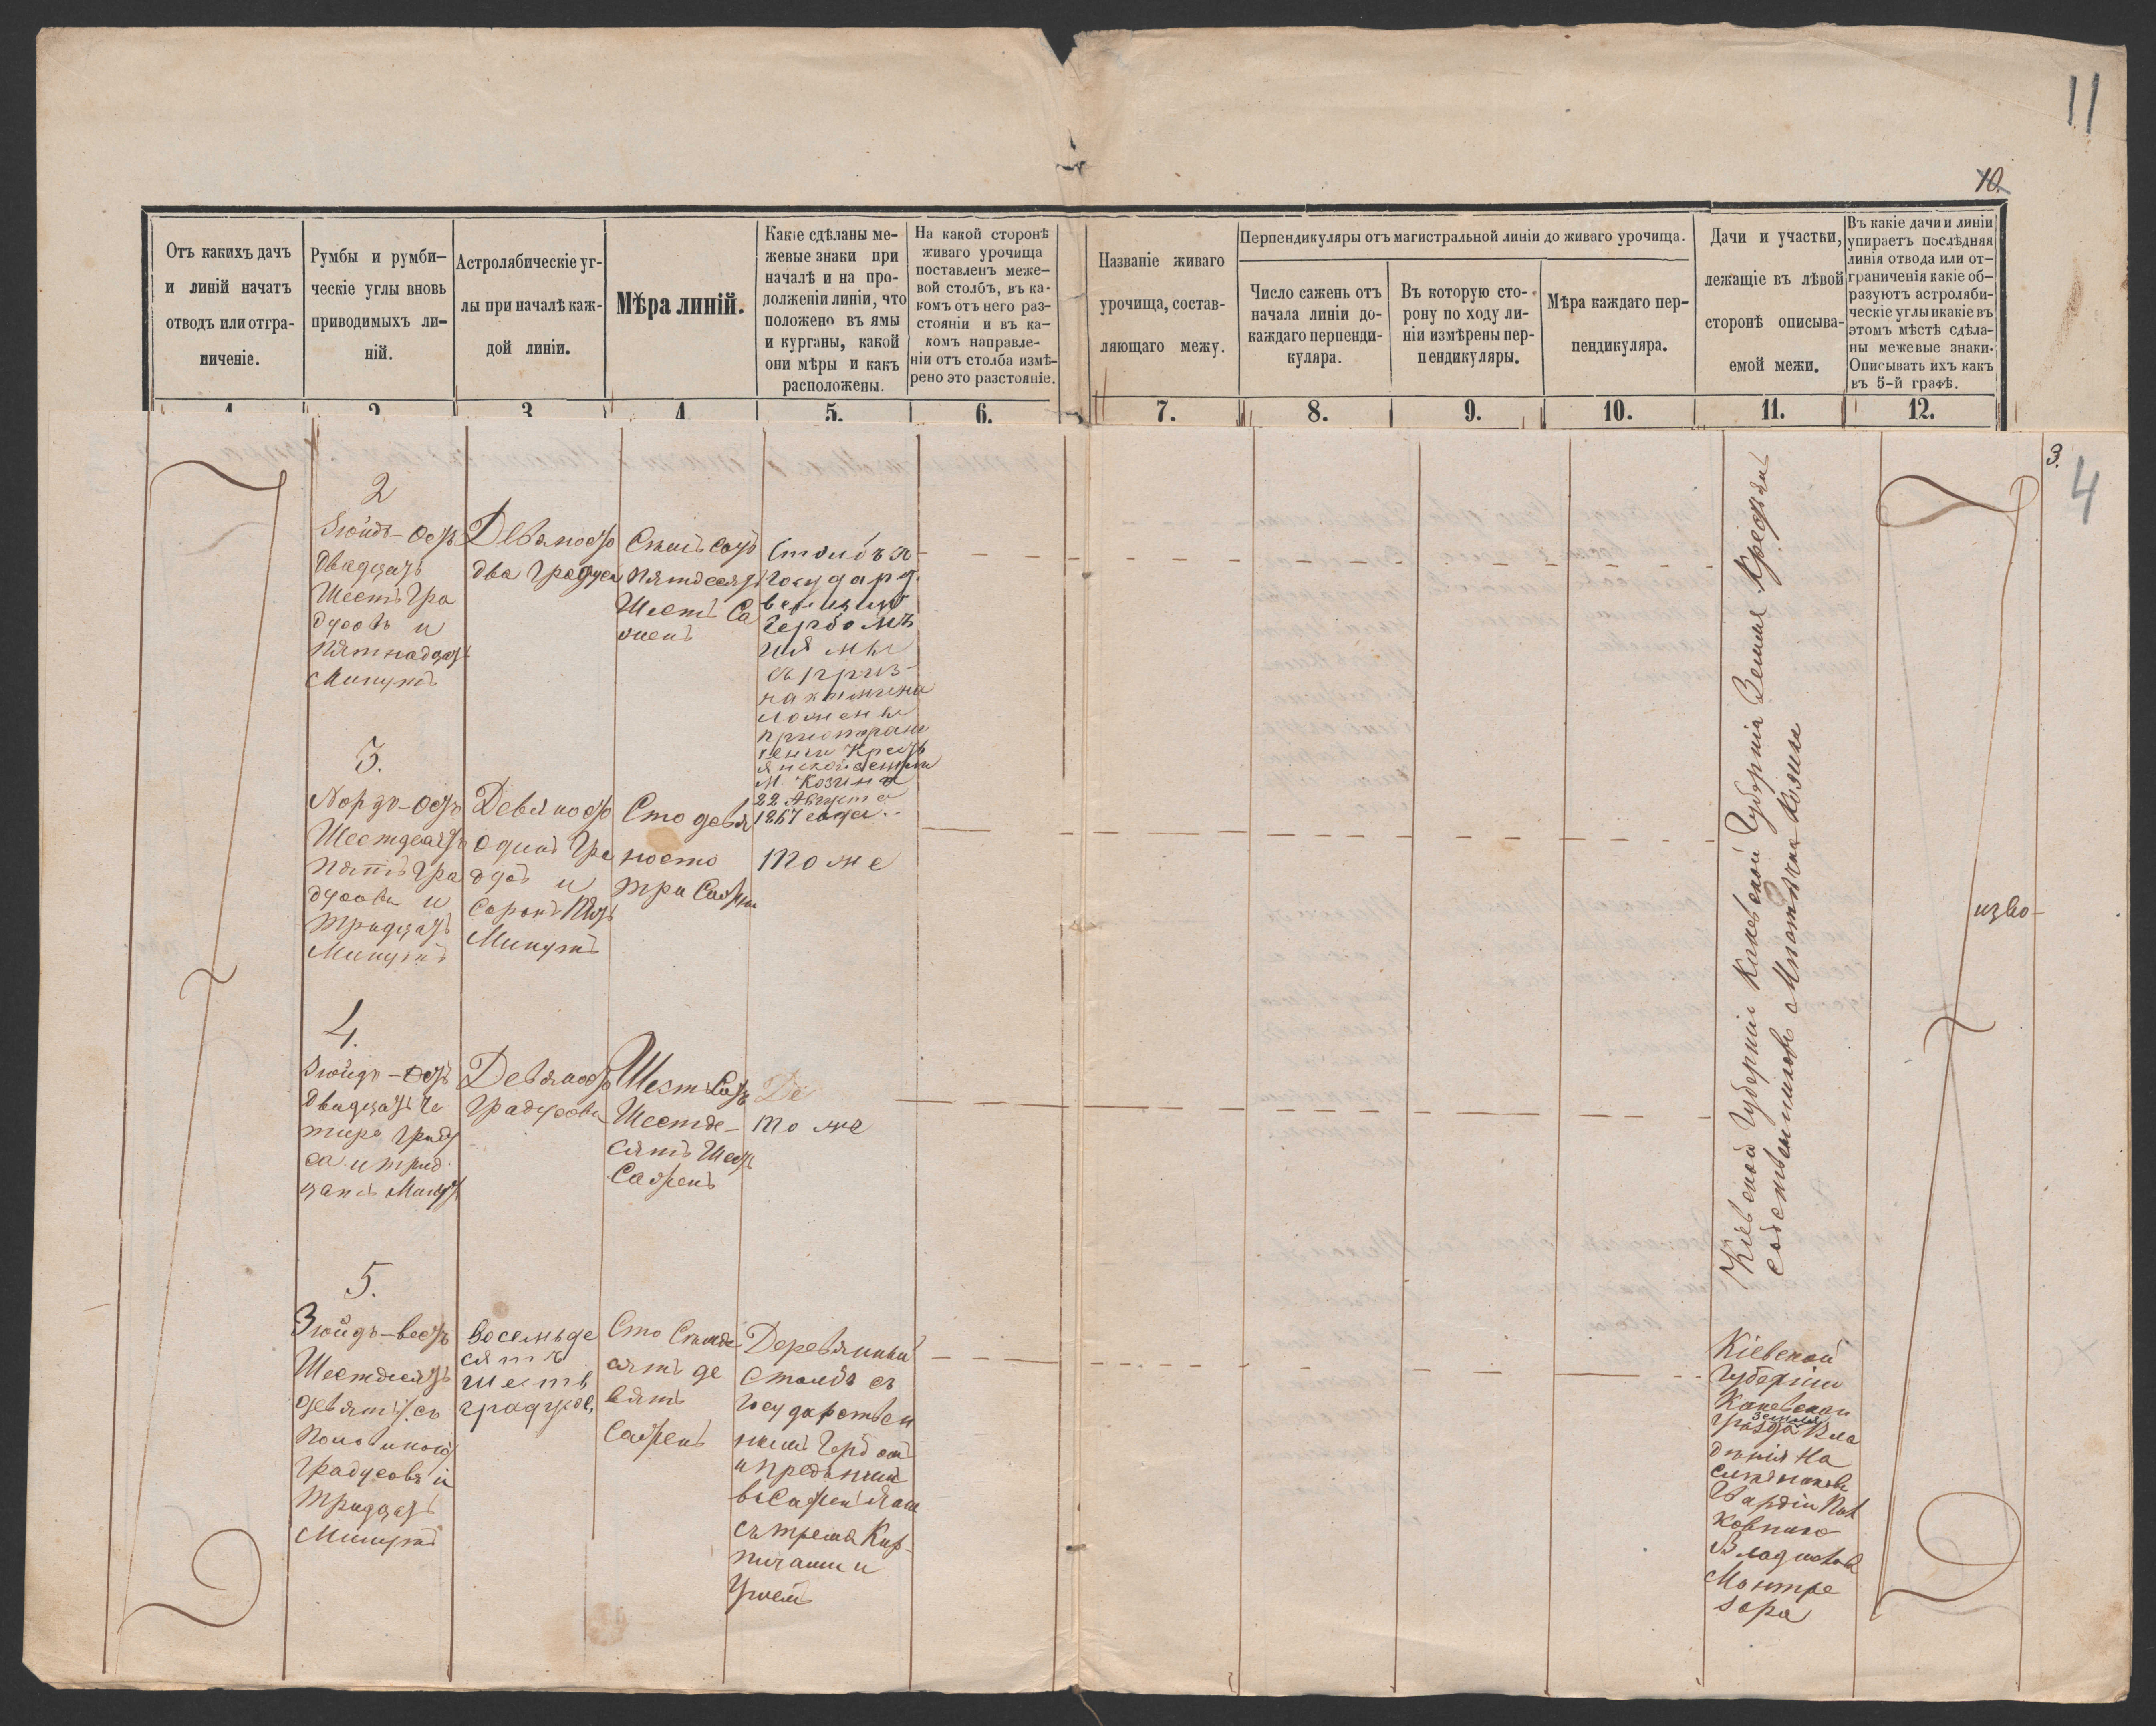 11
10.
Отъ какихъ дачъ
и линій начатъ
отводъ или отгра-
ниченіе.
Румбы и румби-
ческіе углы вновь
приводимыхъ ли-
ній.
Астролябическіе уг-
лы при началѣ каж-
дой линіи.
Мѣра линій.
Какіе сдѣланы ме-
жевые знаки при
началѣ и на про-
долженіи линіи, что
положено въ ямы
и курганы, какой
они мѣры и какъ
расположены.
На какой сторонѣ
живаго урочища
поставленъ меже-
вой столбъ, въ ка-
комъ отъ него раз-
стояніи и въ ка-
комъ направле-
ніи отъ столба измѣ-
рено это разстояніе.
Названіе живаго
урочища, состав-
ляющаго межу.
Перпендикуляры отъ магистральной линіи до живаго урочища.
Число сажень отъ
начала линіи до-
каждаго перпенди-
куляра.
Въ которую сто-
рону по ходу ли-
ніи измѣрены пер-
пендикуляры.
Мѣра каждаго пер-
пендикуляра.
Дачи и участки,
лежащіе въ лѣвой
сторонѣ описыва-
емой межи.
Въ какіе дачи и линіи
упираетъ послѣдняя
линія отвода или от-
граниченія какіе об-
разуютъ астроляби-
ческіе углы и какіе въ
этомъ мѣстѣ сдѣла-
ны межевые знаки.
Описывать ихъ какъ
въ 5-й графѣ.
1. 2. 3. 4. 5. 6. 7. 8. 9. 10. 11. 12.
3.
4
2
Зюйдъ-Остъ
двадцать
Шесть Гра
дусовъ и
пятнадцать
Минутъ
Девяносто
два градуса
Семь сотъ
пятдесятъ
Шесть Са
жень
Столбъ съ
Государст
веннымъ
Гербомъ
ложены
М. Козина
22 Августа
1867 года.
3.
Нордъ-Остъ
Шестдесятъ
пять Гра
дусовъ и
тридцать
Минутъ
Девяносто
одинъ Гра
дусъ и
сорокъ пять
Минутъ
Сто девя
носто
три Сажни
тоже
4.
Зюйдъ-Остъ
двадцать че
тыре Граду
са и трид
цать Минутъ
Девяносто
градусовъ
Шесть Сотъ
Шестде-
сятъ Шесть
Сажень
Де
тоже
5.
Зюйдъ-вестъ
Шестдесятъ
девять съ
половиной
Градусовъ и
Тридцать
Минутъ
Восемьде
сятъ
шесть
градусов,
Сто Семде
сятъ де
вять
Сажень
Деревянный
столбъ съ
Государствен
нымъ Гербомъ
съ тремя Кир-
пичами и
Углемъ
Кіевской Губерніи Каневской Губерніи Земля Крестьянъ
собственниковъ Мѣстѣчка Козина
Кіевской
Губерніи
Каневскаго
уѣзда земля Вла
дѣнія На
слѣдниковъ
Гвардіи Пол
ковника
Владислава
Монтре
зора
изво-